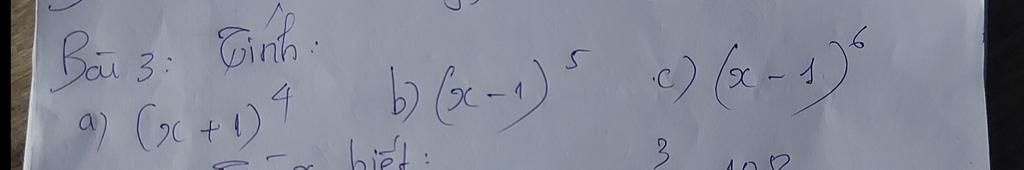 Bài 3: Tính:
a) (x + 1)^4 b) (x - 1)^5 c) (x - 1)^6
biết: 3